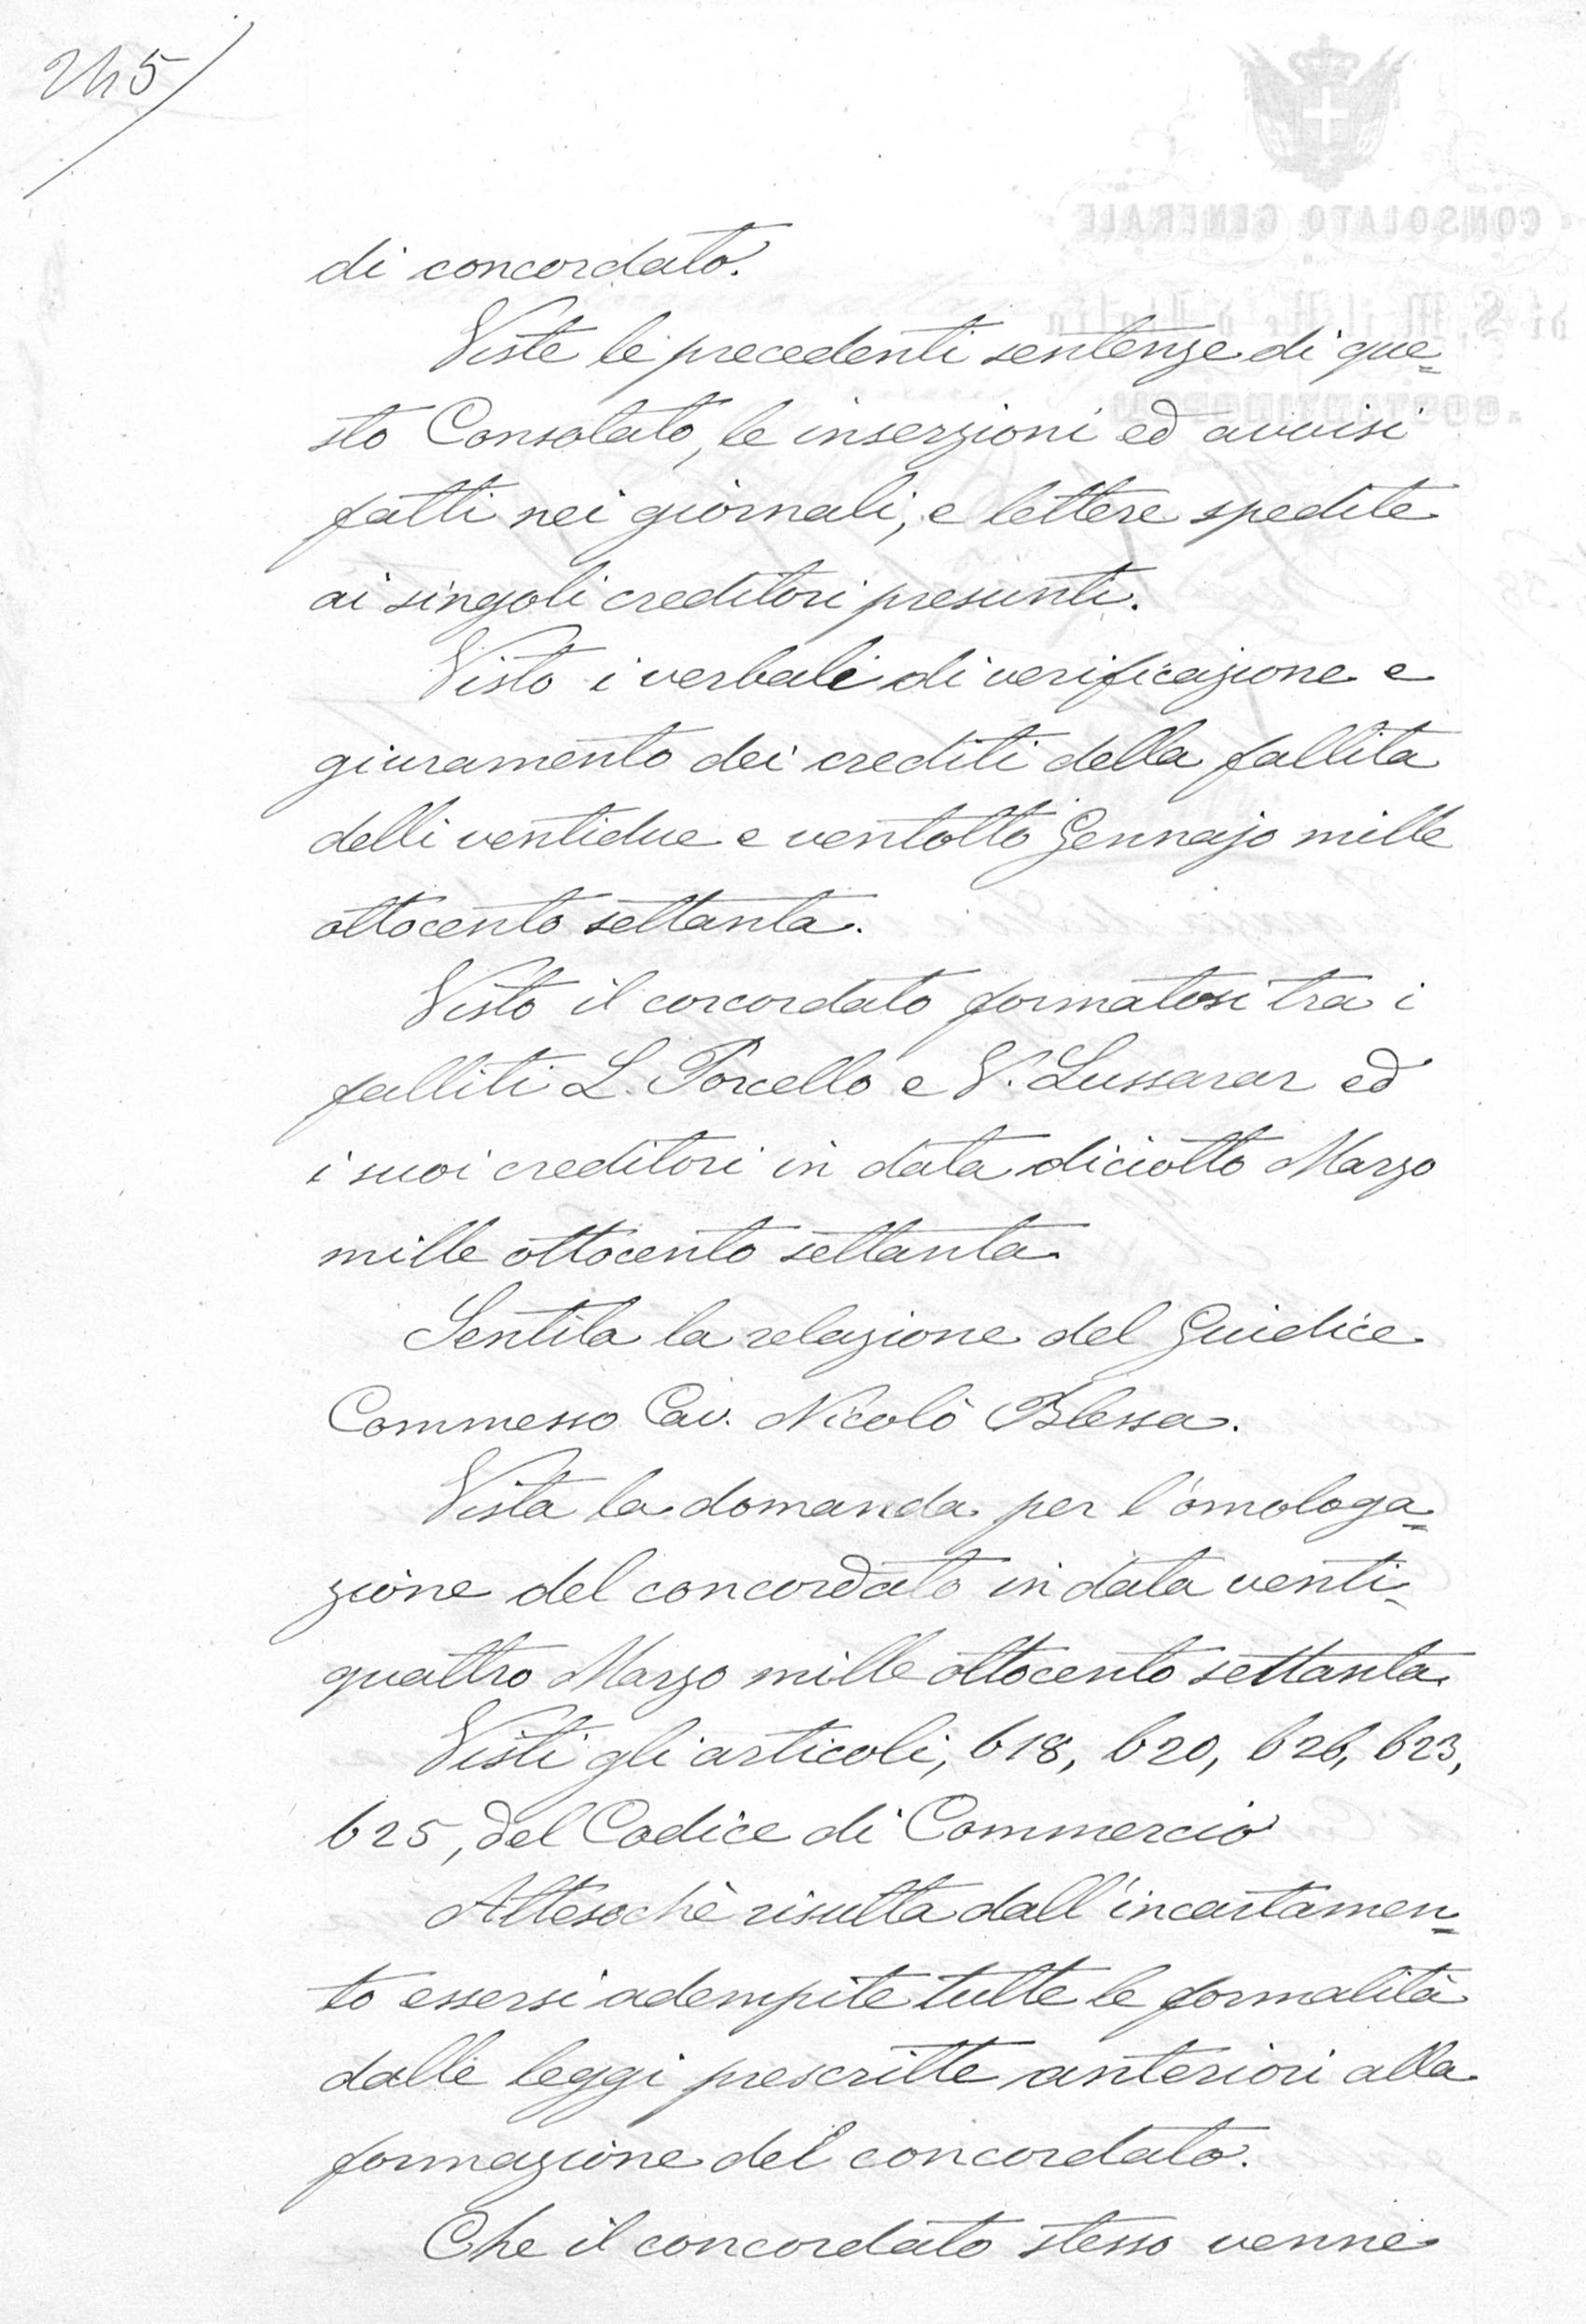 245
di concordato.
Viste le precedenti sentenze di que=
sto Consolato, le inserzioni ed avvisi
fatti nei giornali, e lettere spedite
ai singoli creditori presunti.
Visto i verbali di verificazione e
giuramento dei crediti della fallita
delli ventidue e ventotto Gennajo mille
ottocento settanta.
Visto il corcordato formatosi tra i
falliti L. Porcello e V. Lussarar ed
i suoi creditori in data diciotto Marzo
mille ottocento settanta
Sentita la relazione del Giudice
Commesso Cav. Nicolò Blessa.
Vista la domanda per l'omologa=
zione del concordato in data venti=
quattro Marzo mille ottocento settanta.
Visti gli articoli, 618, 620, 626, 623,
625, del Codice di Commercio
Attesochè risulta dall'incartamen=
to essersi adempite tutte le formalità
dalle leggi prescritte anteriori alla
formazione del concordato.
Che il concordato stesso venne